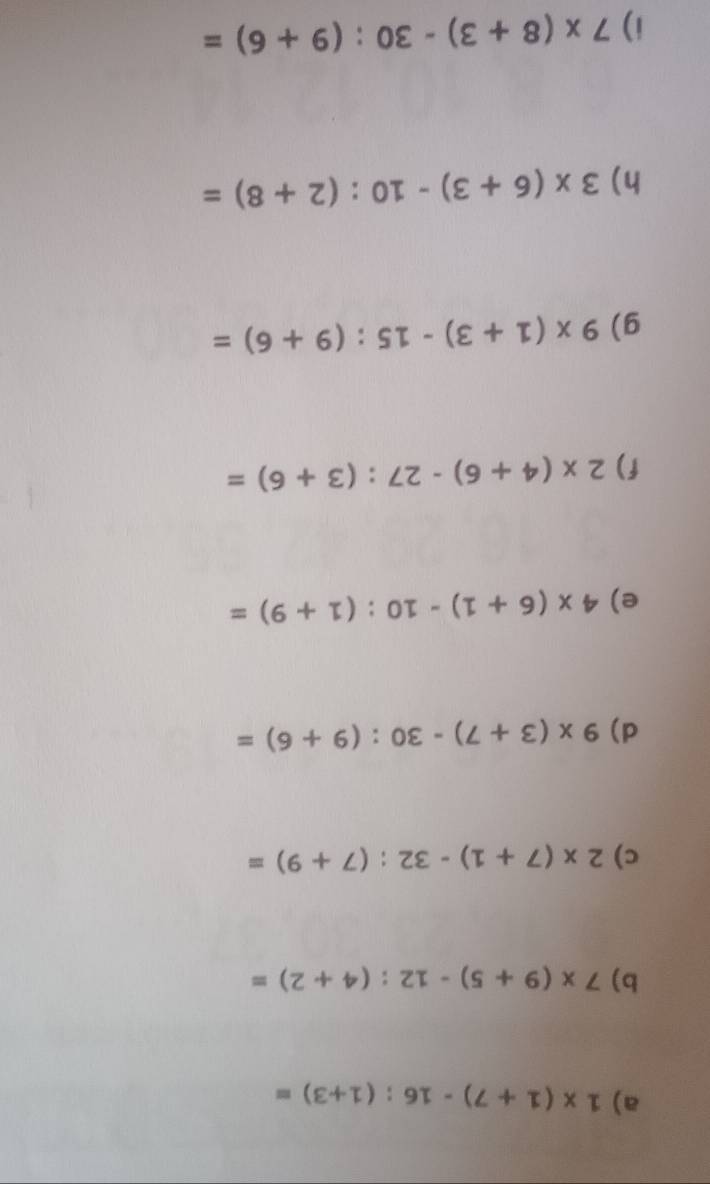 a) 1 x (1 + 7) - 16 : (1+3) =
b) 7 x (9 + 5) - 12 : (4 + 2) =
c) 2 x (7 + 1) - 32 : (7 + 9) =
d) 9 x (3 + 7) - 30 : (9 + 6) =
e) 4 x (6 + 1) - 10 : (1 + 9) =
f) 2 x (4 + 6) - 27 : (3 + 6) =
g) 9 x (1 + 3) - 15 : (9 + 6) =
h) 3 x (6 + 3) - 10 : (2 + 8) =
i) 7 x (8 + 3) - 30 : (9 + 6) =